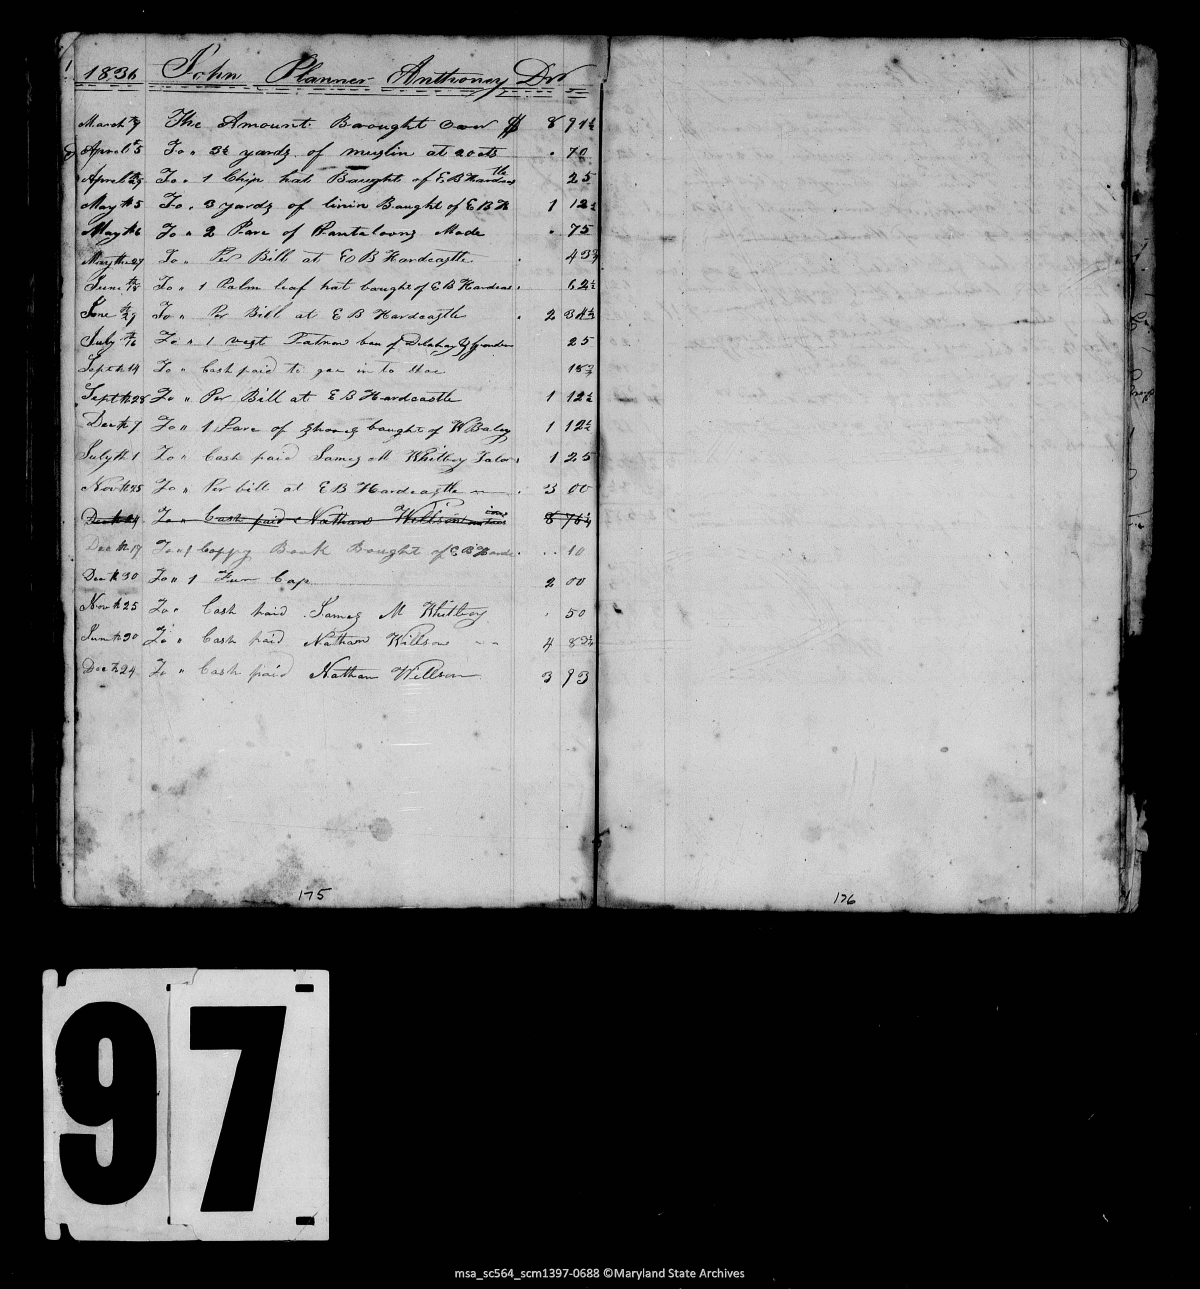 1836 John Planner Anthoney Dr
March th 9 The Amount Brought over $ 8 91½
April th 5 To " 3½ yards of muslin at 20 cts . 70
April th 25 To . 1 Chip hat Baught of E B Hardcas tle 25
May th 5 To . 3 yards of linin Baught of E B H 1 12½
May th 6 To " 2 Pare of Pantaloons Made . 75
May th 27 To " Per Bill at E B Hardcastle . 43¾
June th 18 To " 1 Palm leaf hat baught of E B Hardcas . 62½
June th 29 To " Per Bill at E B Hardcastle . 2 34½
July th 16 To " 1 vest Patron 25
Sept th 14 To " Cash paid to goe in to 18¾
Sept th 28 To " Per Bill at E B Hardcastle 1 12½
Dec th 7 To " 1 Pare of Shoes baught of W Baley 1 12½
July th 1 To " Cash paid James M Whitbey Talor 1 25
Nov th 25 To " Per bill at E B Hardcastle . 3 00
Dec th 24 To " Cash paid Nathan Willson 8 76¼
Dec th 17 To " 1 Coppy Book Baught of E B Hardc . . . 10
Dec th 30 To " 1 Fur Cap 2 00
Nov th 25 To " Cash paid James M Whitbey . 50
June th 30 To " Cash paid Nathan Willson 4 83¼
Dec th 24 To " Cash paid Nathan Willson 3 93
175
176
97
msa_sc564_scm1397-0688 ©Maryland State Archives